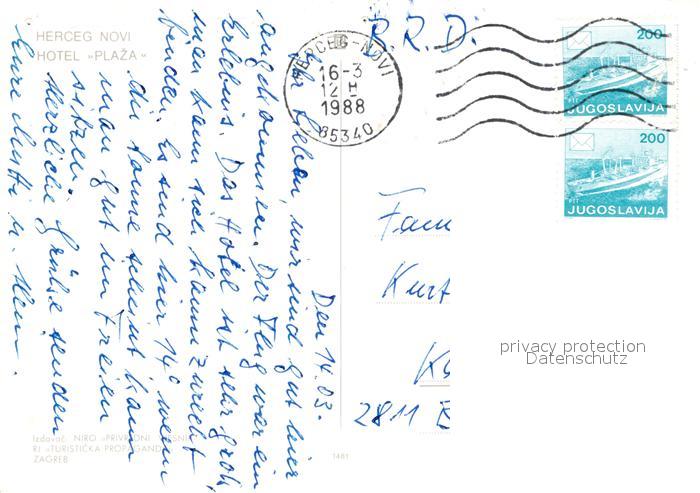 HERCEG NOVI
HOTEL »PLAŽA«
B.R.D.
HERCEG-NOVI
16-3
12 H
1988
85340
200
JUGOSLAVIJA
200
JUGOSLAVIJA
Den 14.03.
Ihr Lieben, wir sind gut hier
angekommen. Der Flug war ein
Erlebnis. Das Hotel ist sehr groß,
man kann sich kaum zurecht
finden. Es sind hier 14° wenn
die Sonne scheint kann
man gut im Freien
sitzen.
Herzliche Grüße senden
Eure Mutti u.
Fam
Kurt
2811
privacy protection
Datenschutz
Izdavač: NIRO »PRIVREDNI VJESNIK«
RJ »TURISTIČKA PROPAGANDA«
ZAGREB
1481